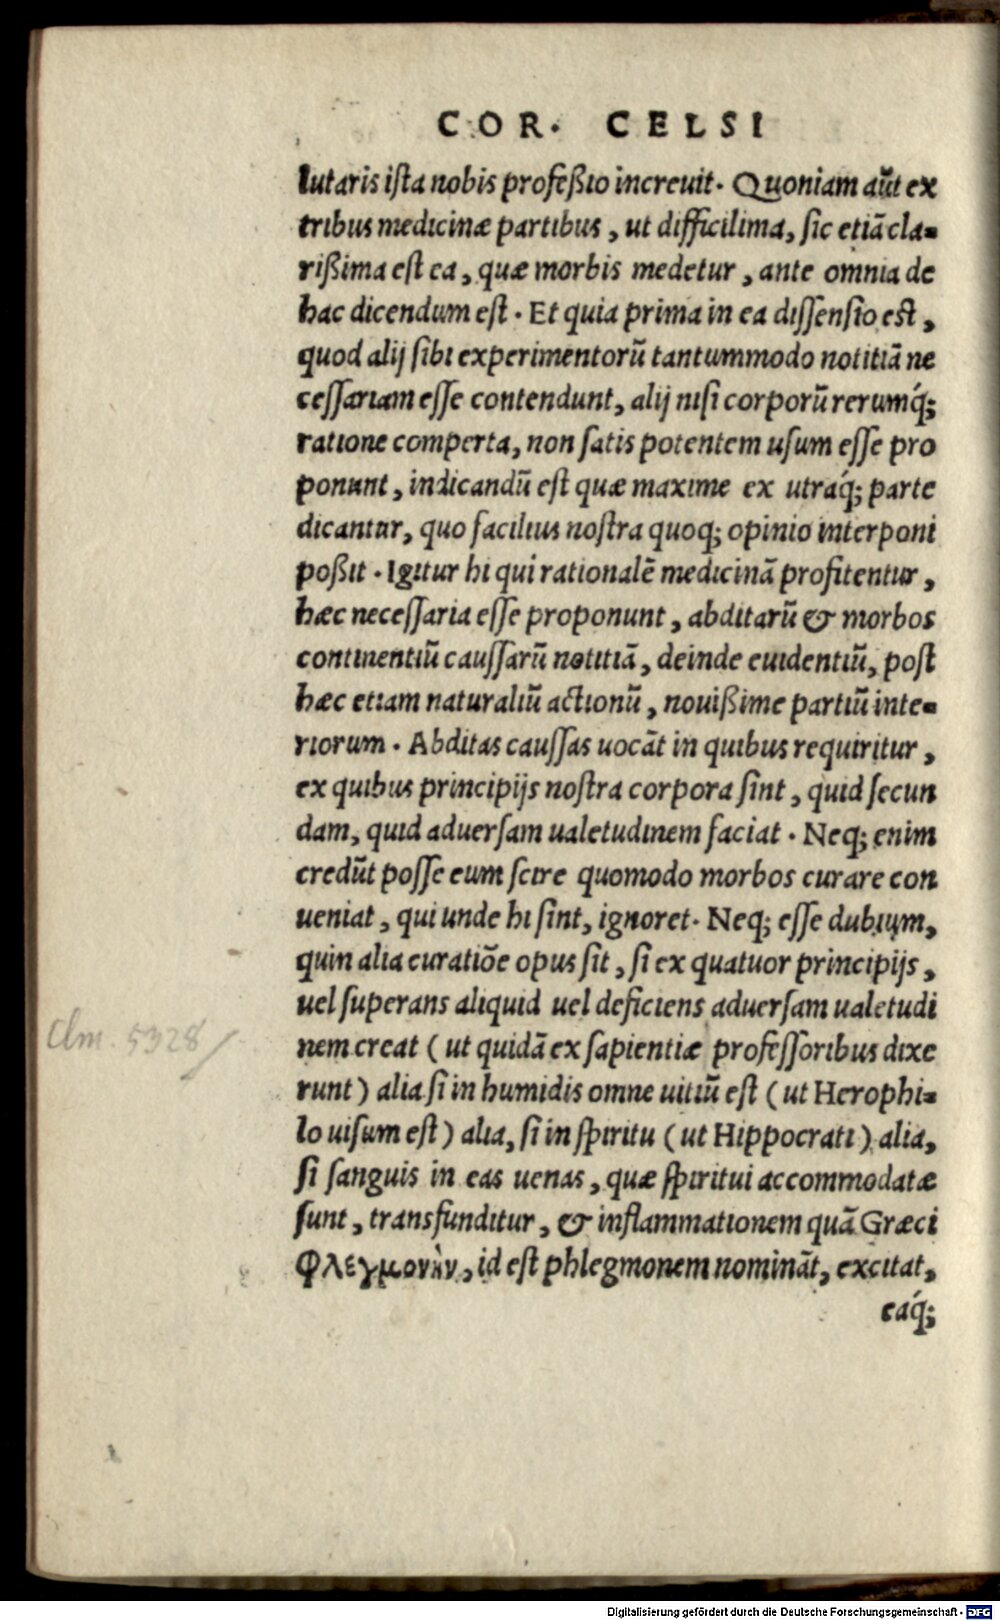 COR. CELSI
lutaris ista nobis profeßio increuit. Quoniam aũt ex
tribus medicinæ partibus, ut difficilima, sic etiã cla-
rißima est ea, quæ morbis medetur, ante omnia de
hac dicendum est. Et quia prima in ea dissensio est,
quod alij sibi experimentorũ tantummodo notitiã ne
cessariam esse contendunt, alij nisi corporũ rerumq́;
ratione comperta, non satis potentem usum esse pro
ponunt, indicandũ est quæ maxime ex utraq́; parte
dicantur, quo facilius nostra quoq; opinio interponi
poßit. Igitur hi qui rationalẽ medicinã profitentur,
hæc necessaria esse proponunt, abditarũ & morbos
continentiũ caussarũ notitiã, deinde euidentiũ, post
hæc etiam naturaliũ actionũ, nouißime partiũ inte-
riorum. Abditas caussas uocãt in quibus requiritur,
ex quibus principijs nostra corpora sint, quid secun
dam, quid aduersam ualetudinem faciat. Neq; enim
credũt posse eum scire quomodo morbos curare con
ueniat, qui unde hi sint, ignoret. Neq; esse dubium,
quin alia curatiõe opus sit, si ex quatuor principijs,
uel superans aliquid uel deficiens aduersam ualetudi
nem creat (ut quidã ex sapientiæ professoribus dixe
runt) alia si in humidis omne uitiũ est (ut Herophi-
lo uisum est) alia, si in spiritu (ut Hippocrati) alia,
si sanguis in eas uenas, quæ spiritui accommodatæ
sunt, transfunditur, & inflammationem quã Græci
φλεγμονὴν, id est phlegmonem nominãt, excitat,
eaq́;
Clm. 5328/
Digitalisierung gefördert durch die Deutsche Forschungsgemeinschaft - DFG